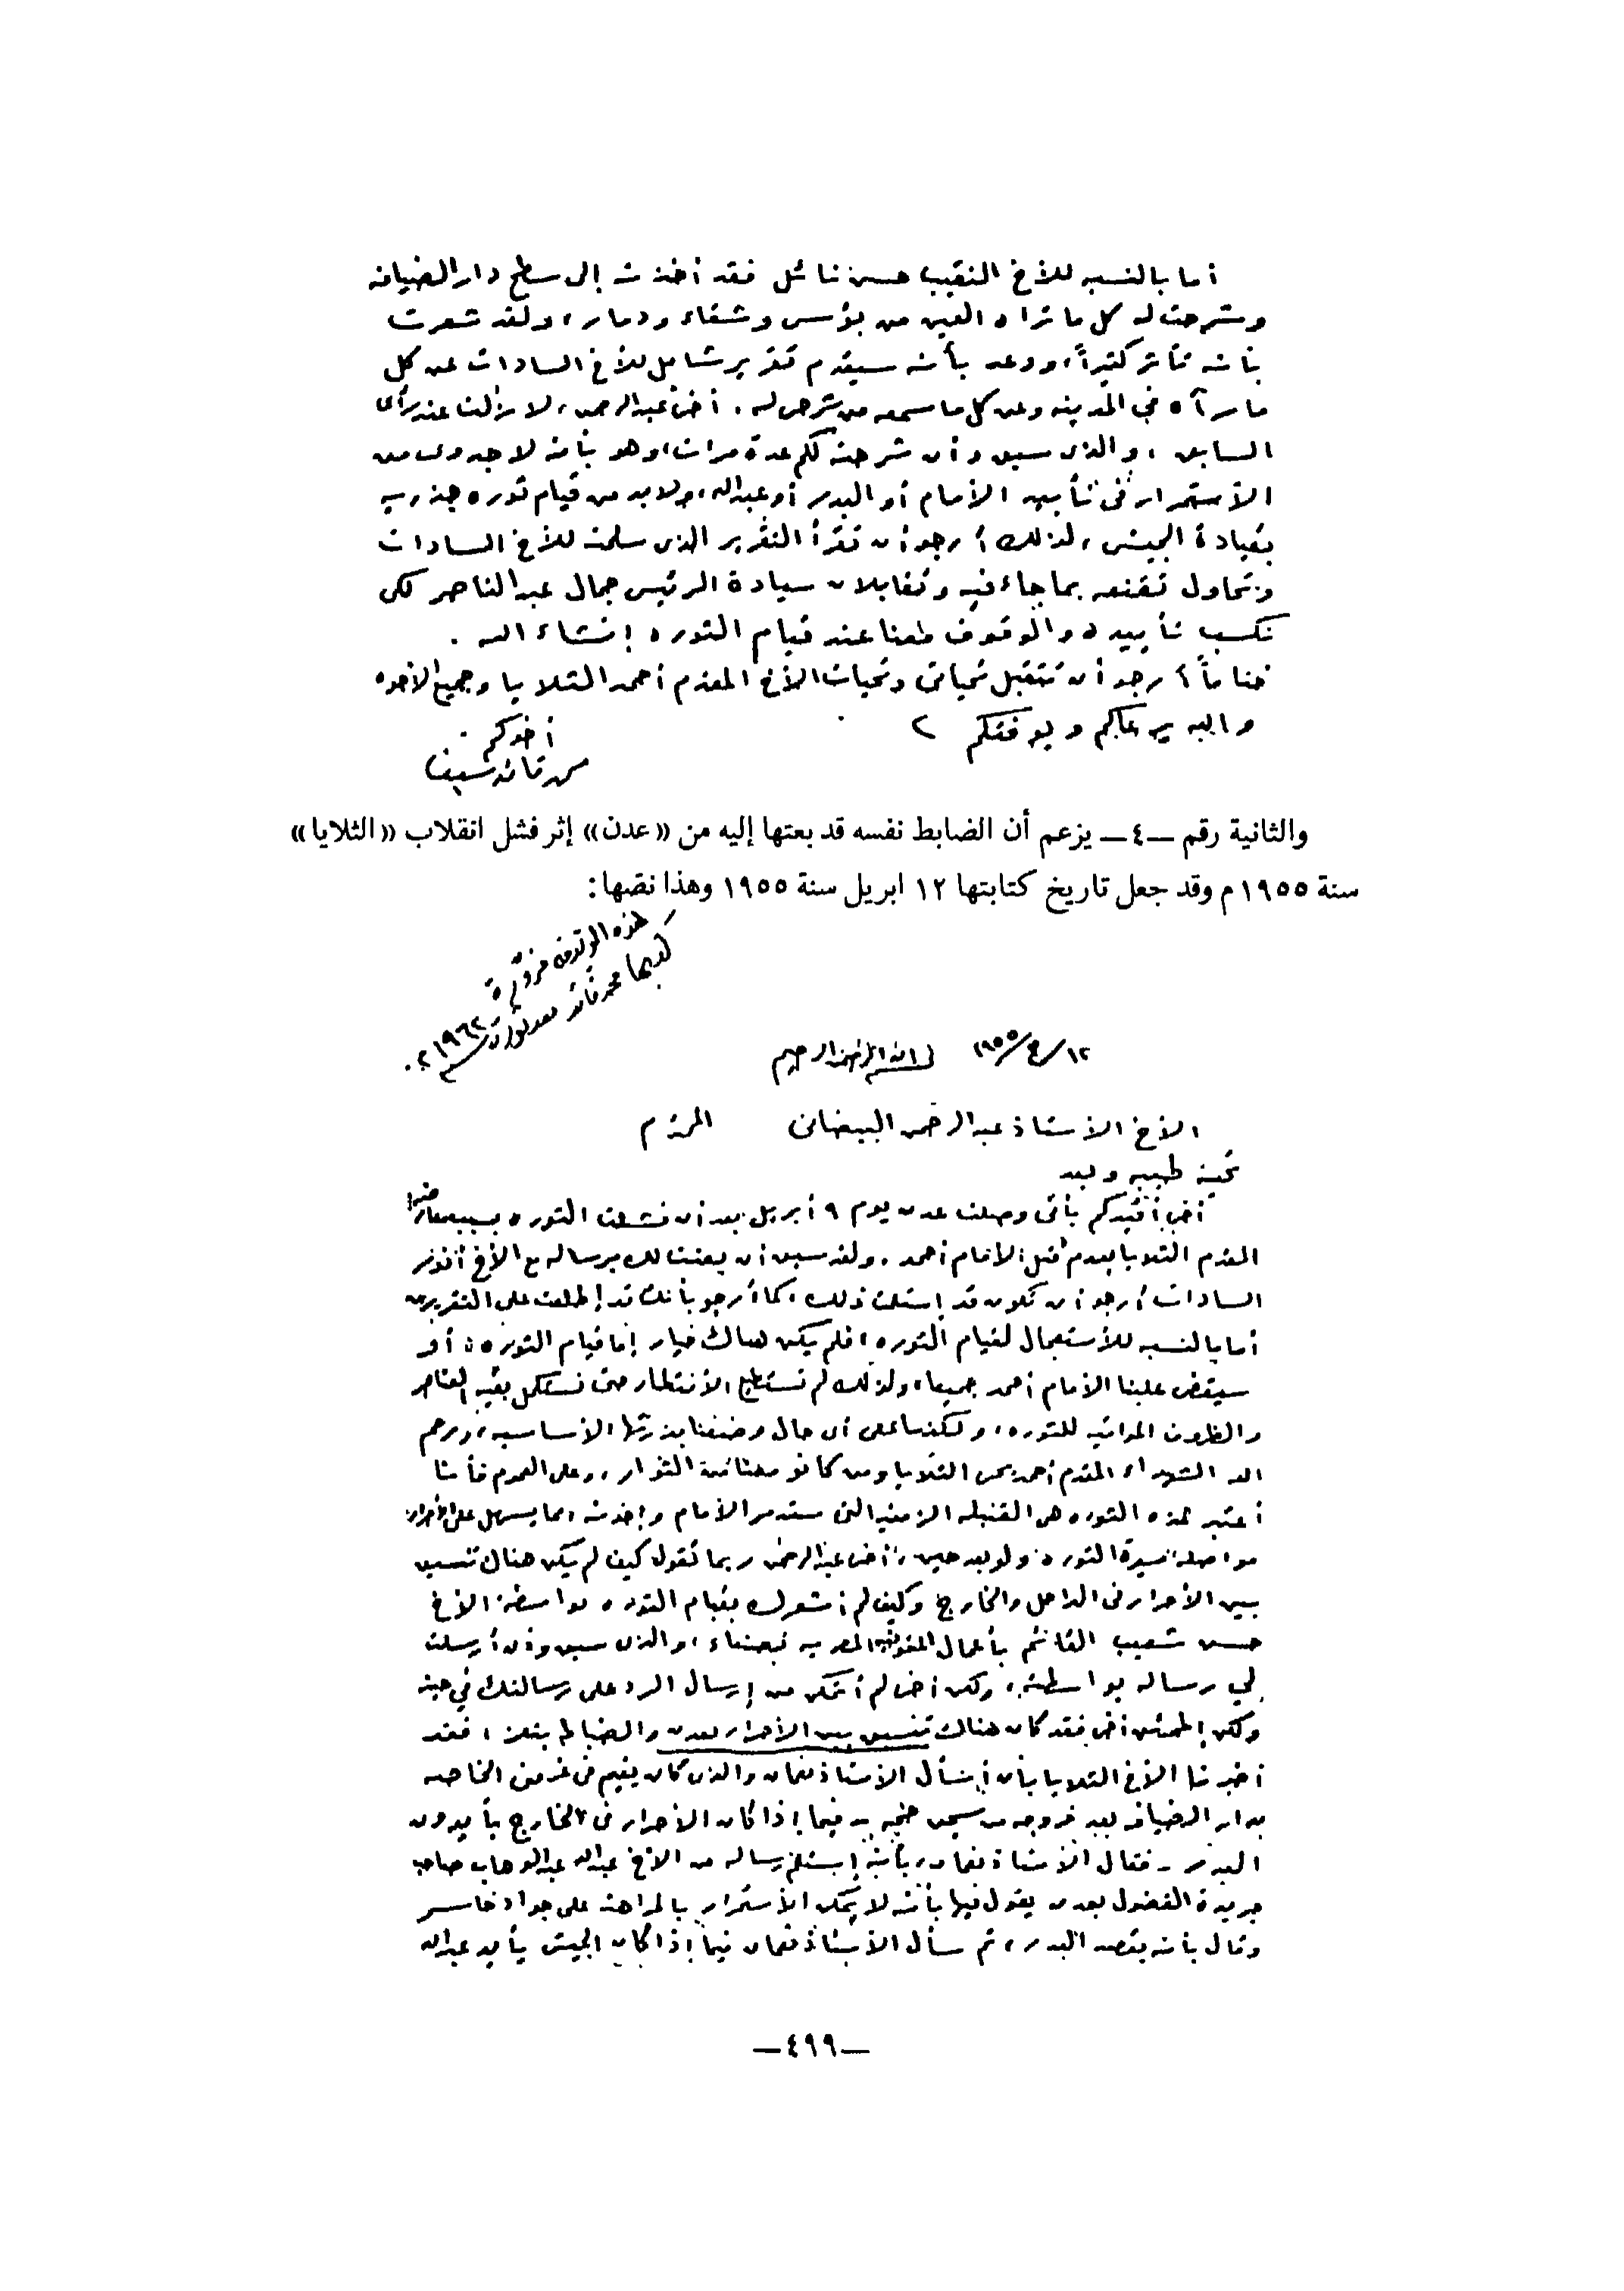 أما بالنسبه للأخ النقيب حسن نائل فقد أخذته إلى سطح دار الضيافه
وشرحت له كل ما تراه العين من بؤس وشقاء ودمار، ولقد شعرت
بأنه تأثر كثيراً، ووعد بأنه سيقدم تقرير شامل للأخ السادات عن كل
ما رآه في المدينه وعن كل ما سمعه من شرحى له. أخى عبدالرحمن، لا زلت عند رأى
السابق، والذى سبق وأن شرحته لكم عدة مرات، وهو بأنه لا جدوى من
الأستمرار فى تأييد الأمام أو البدر أو عبدالله، ولابد من قيام ثوره جذريه
بقيادة الجيش، لذلك أرجو أن تقرأ التقرير الذى سلمته للأخ السادات
وتحاول تقنعه بما جاء فيه وتقابلان سيادة الرئيس جمال عبدالناصر لكى
نكسب تأييده والوقوف معنا عند قيام الثوره إنشاء الله.
ختاماً أرجو أن تتقبل تحياتى وتحيات الأخ المقدم أحمد الثلايا وجميع الأخوه
والله يرعاكم ويوفقكم
أخوكم
محمد قائد سيف
والثانية رقم —٤— يزعم أن الضابط نفسه قد بعثها إليه من «عدن» إثر فشل انقلاب «الثلايا»
سنة ١٩٥٥م وقد جعل تاريخ كتابتها ١٢ ابريل سنة ١٩٥٥ وهذا نصها:
هذه الوثيقة مزورة
كتبها محمد قائد بعد ثورة
١٩٦٢م.
١٢/٤/١٩٥٥ بسم الله الرحمن الرحيم
الأخ الأستاذ عبدالرحمن البيضانى المحترم
تحيه طيبه وبعد
أخى أفيدكم بأنى وصلت عدن يوم ٩ أبريل بعد أن فشلت الثوره بسبب معارضة
المقدم الثلايا بعدم قتل الأمام أحمد. ولقد سبق أن بعثت لك برساله مع الأخ أنور
السادات أرجو أن تكون قد إستلمت ذلك، كما أرجو بأنك قد إطلعت على التقريرين
أما بالنسبه للأستعجال لقيام الثوره، فلم يكن هناك خيار إما قيام الثوره أو
سيقضى علينا الأمام أحمد جميعا، ولذلك لم نستطيع الأنتظار حتى نستكمل بقية العناصر
والظروف المواتيه للثوره، ولكننا على أى حال وضعنا بذرتها الأساسيه، ورحم
الله الشهداء المقدم أحمد يحى الثلايا ومن كانو معنا من الثوار، وعلى العموم فأننا
أعتبر هذه الثوره هى القنبله الزمنيه التى ستدمر الأمام وإخوته، مما يسهل على الأحرار
مواصلة مسيرة الثوره ولو بعد حين، أخى عبدالرحمن ربما تقول كيف لم يكن هناك تنسيق
بين الأحرار فى الداخل والخارج وكيف لم أشعرك بقيام الثوره بواسطة الأخ
حسن شعيب القائم بأعمال المفوضيه المصريه بصنعاء، والذى سبق وأن أرسلت
لي رساله بواسطته، ولكن أخى لم أتمكن من إرسال الرد على رسالتك في حينه
ولكن إطمئن أخى فقد كان هناك تنسيق بين الأحرار بعدن والضباط بتعز، فقد
أخبرنا الأخ الثلايا بأن أسأل الأستاذ نعمان والذى كان يقيم فى غرفتى الخاصه
بدار الضيافه بعد خروجه من سجن حجه - فيما إذا كان الأحرار فى الخارج يأيدون
البدر - فقال الأستاذ نعمان، بأنه إستلم رساله من الأخ عبدالله عبدالوهاب صاحب
جريدة الفضول بعدن يقول فيها بأنه لا يمكن الأستمرار بالمراهنه على جواد خاسر
وقال بأنه يقصد البدر، ثم سأل الأستاذ نعمان فيما إذا كان الجيش يأيد عبدالله
—٤٩٩—